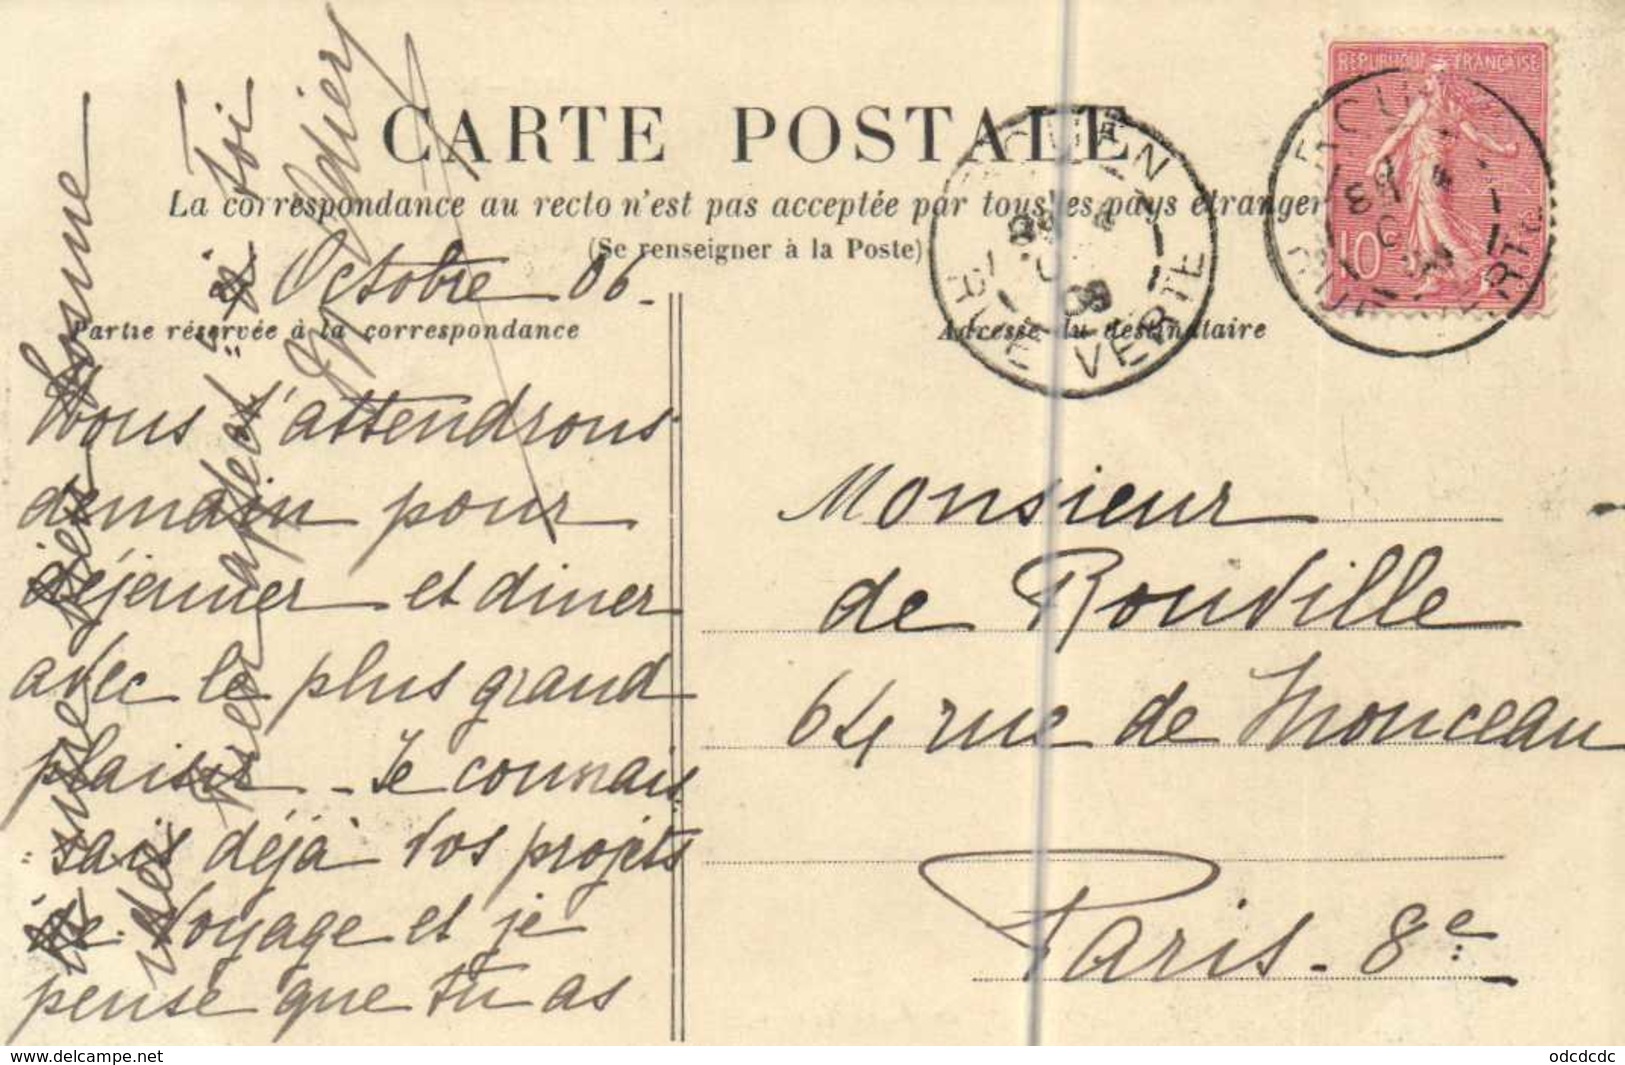 CARTE POSTALE
La correspondance au recto n'est pas acceptée par tous les pays étrangers
(Se renseigner à la Poste)
Partie réservée à la correspondance
Adresse du destinataire
REPUBLIQUE FRANÇAISE
10c
VERTE
Octobre 06.
Nous t'attendrons
demain pour
déjeuner et diner
avec le plus grand
plaisir. Je connais
sais déjà vos projets
de voyage et je
pense que tu as
à toi
Monsieur
de Rouville
64 rue de Monceau
Paris. 8e
delcampe.net
odcdcdc